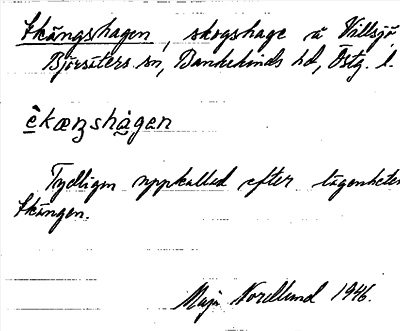 Skängshagen, skogshage å Villsjö,
Björsäters sn, Bankekinds hd, Östg. l.
ê̱kæŋshàgan
Tydligen uppkallad efter lägenheten
Skängen.
Maja Nordlund 1946.